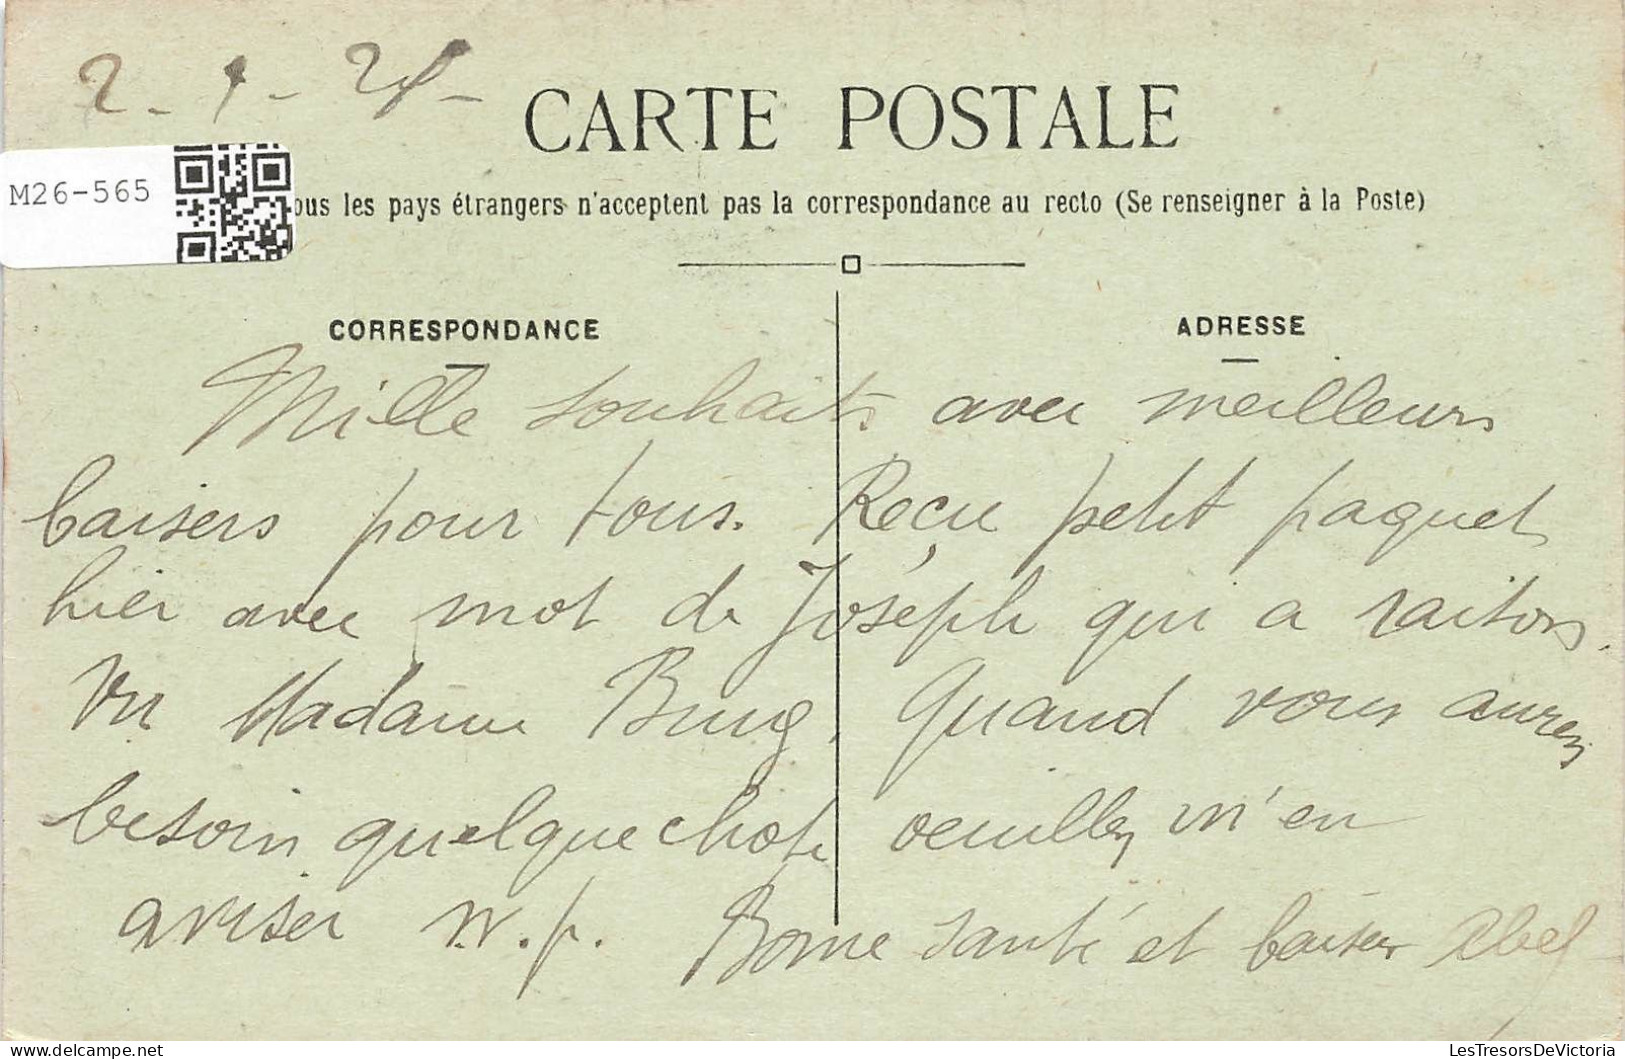 2 - 1 - 25 -
CARTE POSTALE
M26-565
ous les pays étrangers n'acceptent pas la correspondance au recto (Se renseigner à la Poste)
CORRESPONDANCE
ADRESSE
Mille souhaits avec meilleurs
baisers pour tous. Reçu petit paquet
hier avec mot de Joseph qui a raison.
Vu Madame Burg. Quand vous aurez
besoin quelque chose veuillez m'en
aviser n. p. Bonne santé et baiser Abel
delcampe.net
LesTresorsDeVictoria